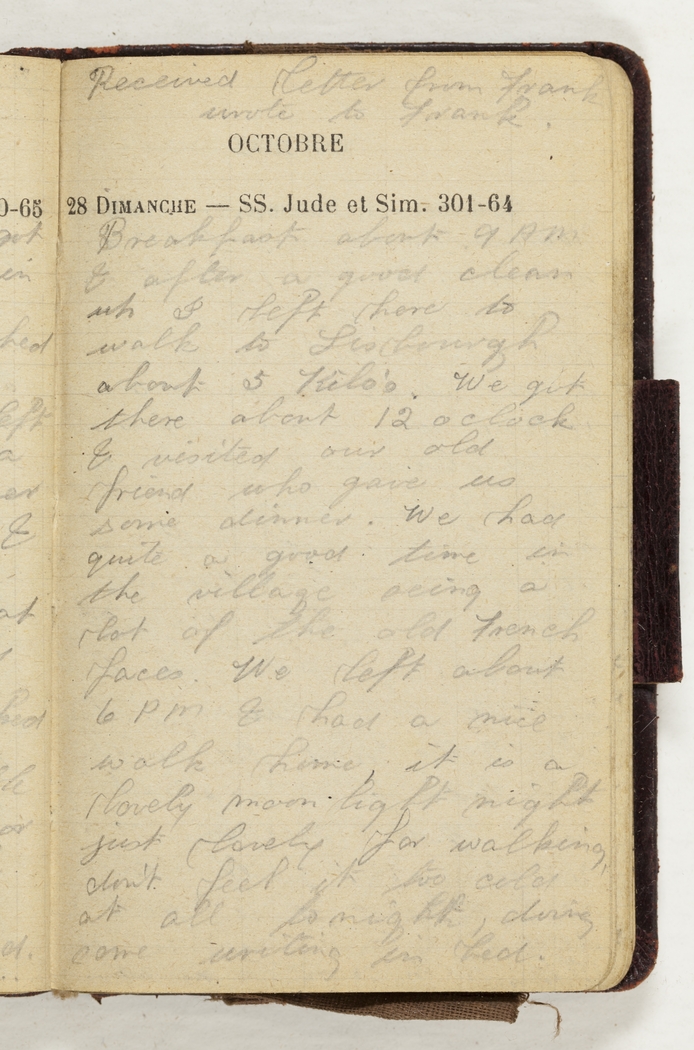 Received letter from Frank
wrote to Frank.
OCTOBRE
0-65
28 DIMANCHE — SS. Jude et Sim. 301-64
Breakfast about 9 AM
& after a good clean
uh I left here to
walk to Lisbourgh
about 5 Kilo's. We got
there about 12 oclock
& visited our old
friend who gave us
some dinner. We had
quite a good time in
the village seing a
lot of the old French
faces. We left about
6 PM & had a nice
walk home, it is a
lovely moon light night
just lovely for walking,
don't feel it too cold
at all tonight, doing
some writing in bed.